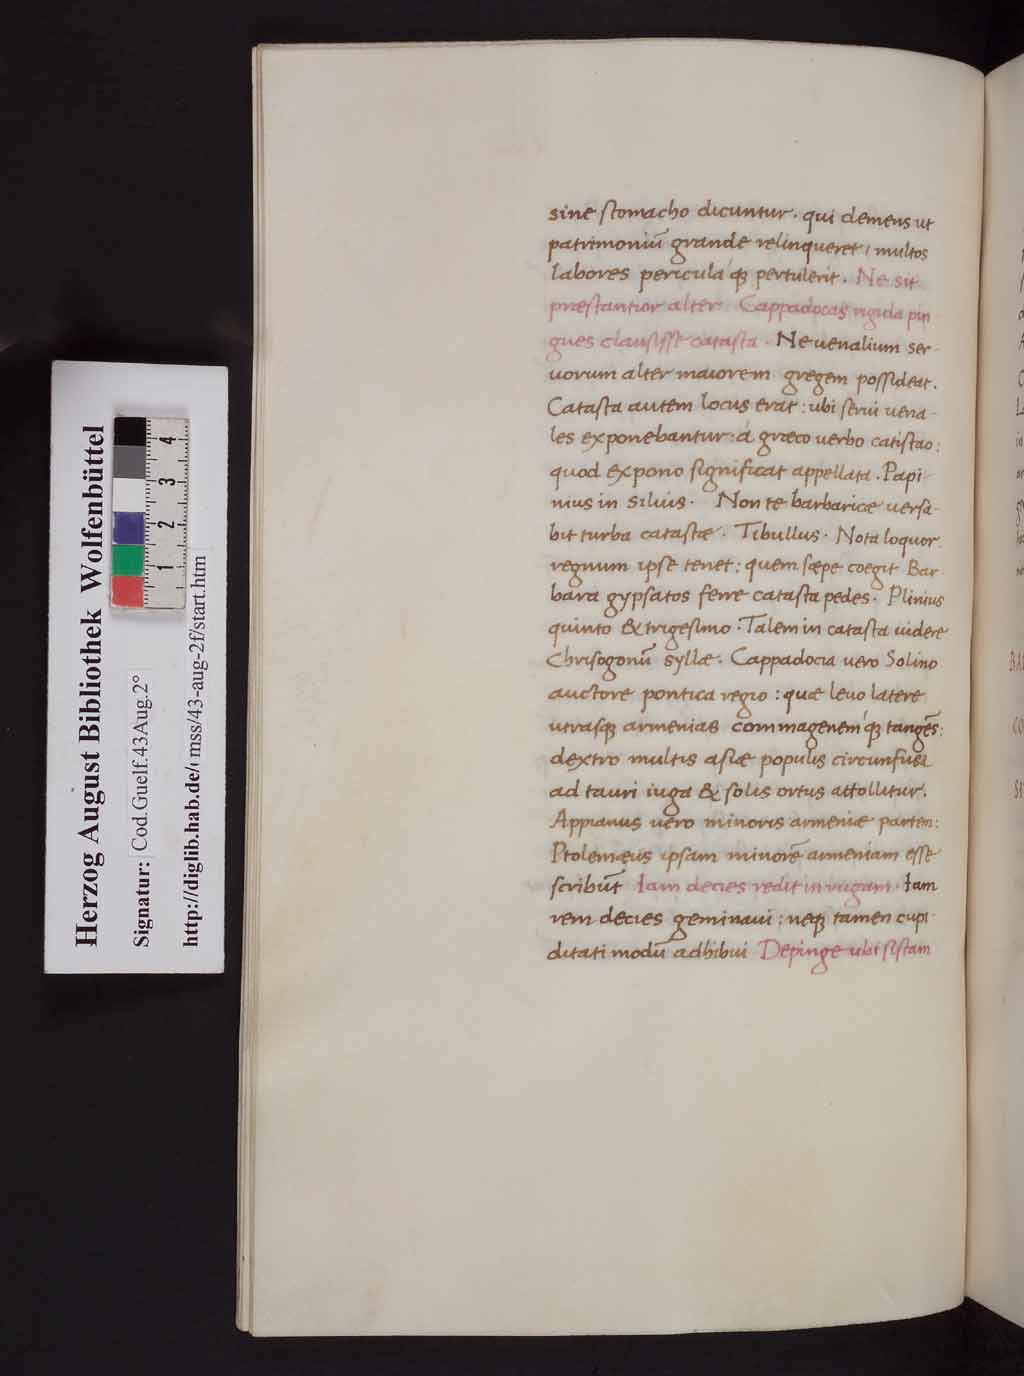 Herzog August Bibliothek Wolfenbüttel
Signatur: Cod.Guelf.43Aug.2°
http://diglib.hab.de/ mss/43-aug-2f/start.htm
1 2 3 4
sine stomacho dicuntur. qui demens ut
patrimoniū grande relinqueret, multos
labores periculaq; pertulerit. Ne sit
præstantior alter Cappadocas rigida pin
gues clausisse catasta. Ne uenalium ser-
uorum alter maiorem gregem possideat.
Catasta autem locus erat: ubi serui uena-
les exponebantur: á græco uerbo catistao:
quod expono significat appellata. Papi-
nius in siluis. Non te barbaricæ uersa-
bit turba catastæ. Tibullus. Nota loquor.
regnum ipse tenet: quem sæpe coegit Bar-
bara gypsatos ferre catasta pedes. Plinius
quinto & trigesimo. Talem in catasta uidere
Chrisogonū syllæ. Cappadocia uero Solino
auctore pontica regio: quæ leuo latere
utrasq; armenias commagenemq; tangēs:
dextro multis asiæ populis circunfusa
ad tauri iuga & solis ortus attollitur.
Appianus uero minoris armeniæ partem:
Ptolemæus ipsam minorē armeniam esse
scribūt Iam decies redit in rugam. Iam
rem decies geminaui: neq; tamen cupi-
ditati modū adhibui Depinge ubi sistam